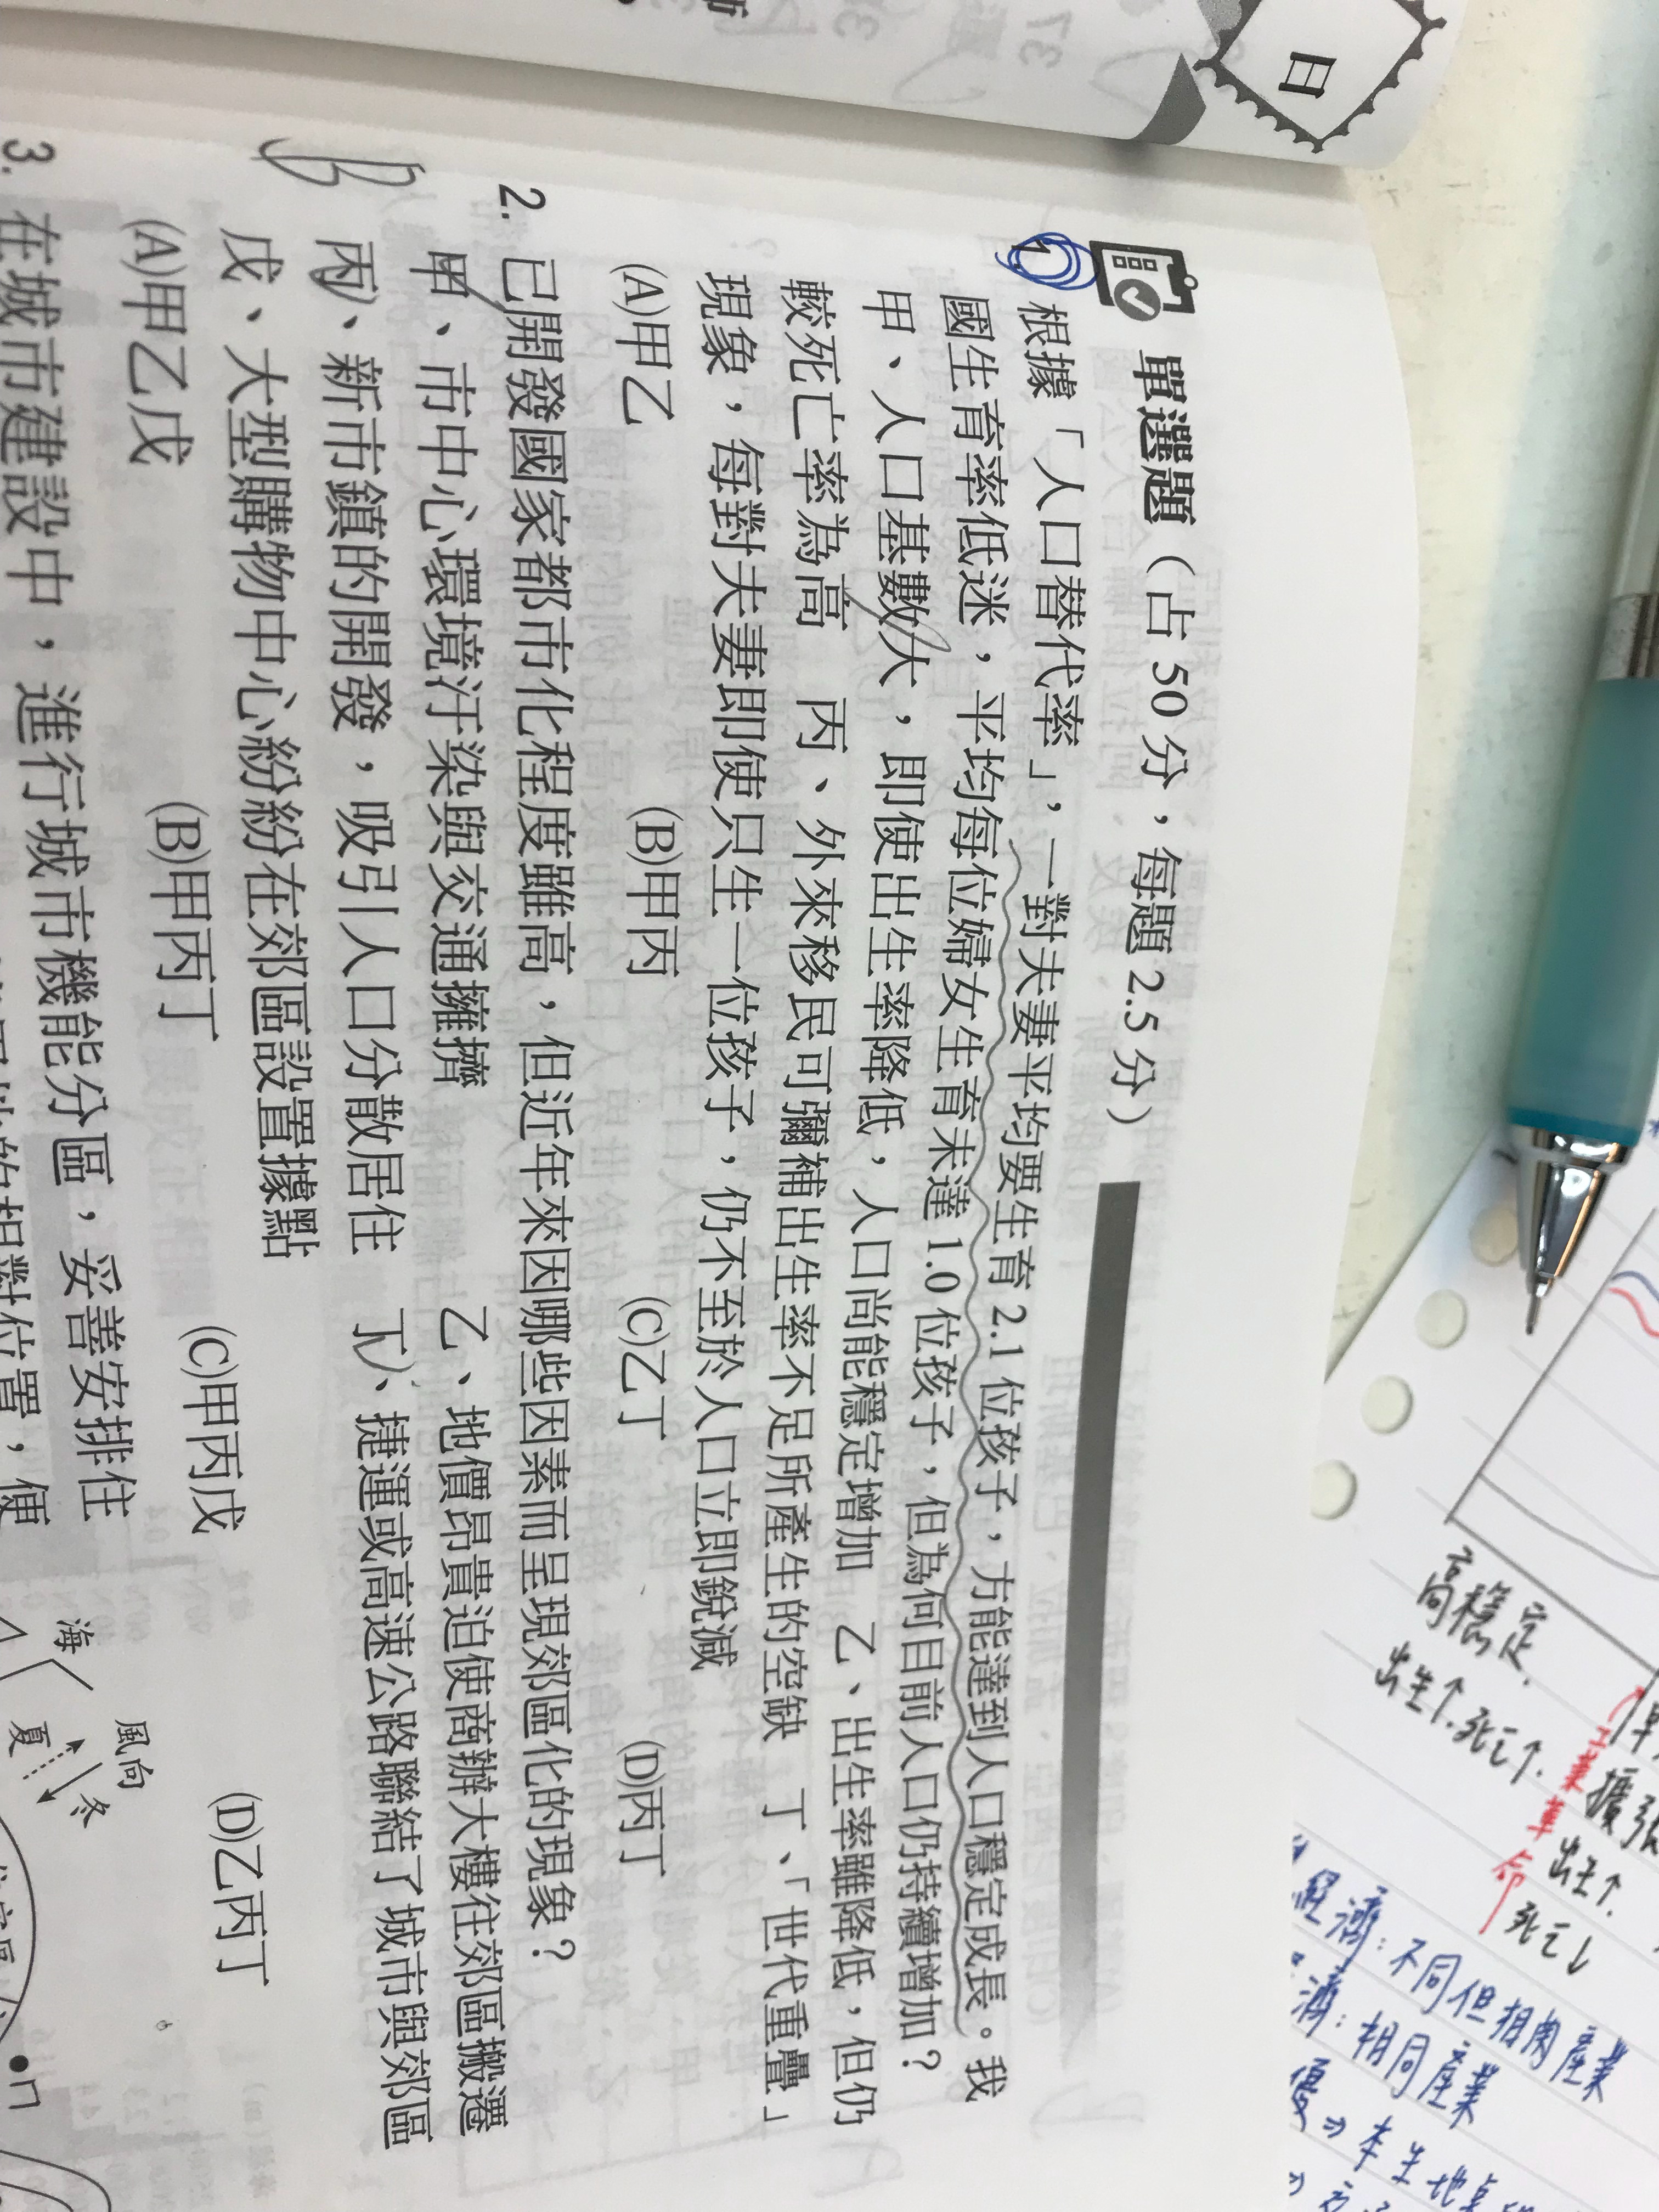 日
單選題（占 50 分，每題 2.5 分）
1. 根據「人口替代率」，一對夫妻平均要生育 2.1 位孩子，方能達到人口穩定成長。我
國生育率低迷，平均每位婦女生育未達 1.0 位孩子，但為何目前人口仍持續增加？
甲、人口基數大，即使出生率降低，人口尚能穩定增加　乙、出生率雖降低，但仍
較死亡率為高　丙、外來移民可彌補出生率不足所產生的空缺　丁、「世代重疊」
現象，每對夫妻即使只生一位孩子，仍不至於人口立即銳減
(A)甲乙　(B)甲丙　(C)乙丁　(D)丙丁
2. 已開發國家都市化程度雖高，但近年來因哪些因素而呈現郊區化的現象？
甲、市中心環境汙染與交通擁擠　乙、地價昂貴迫使商辦大樓往郊區搬遷
丙、新市鎮的開發，吸引人口分散居住　丁、捷運或高速公路聯結了城市與郊區
戊、大型購物中心紛紛在郊區設置據點
B
(A)甲乙戊　(B)甲丙丁　(C)甲丙戊　(D)乙丙丁
3. 在城市建設中，進行城市機能分區，妥善安排住
海
風向
夏
冬
高穩定
出生↑死亡↑
工業革命
擴張
出生↑
死亡↓
經濟：不同但相關產業
濟：相同產業